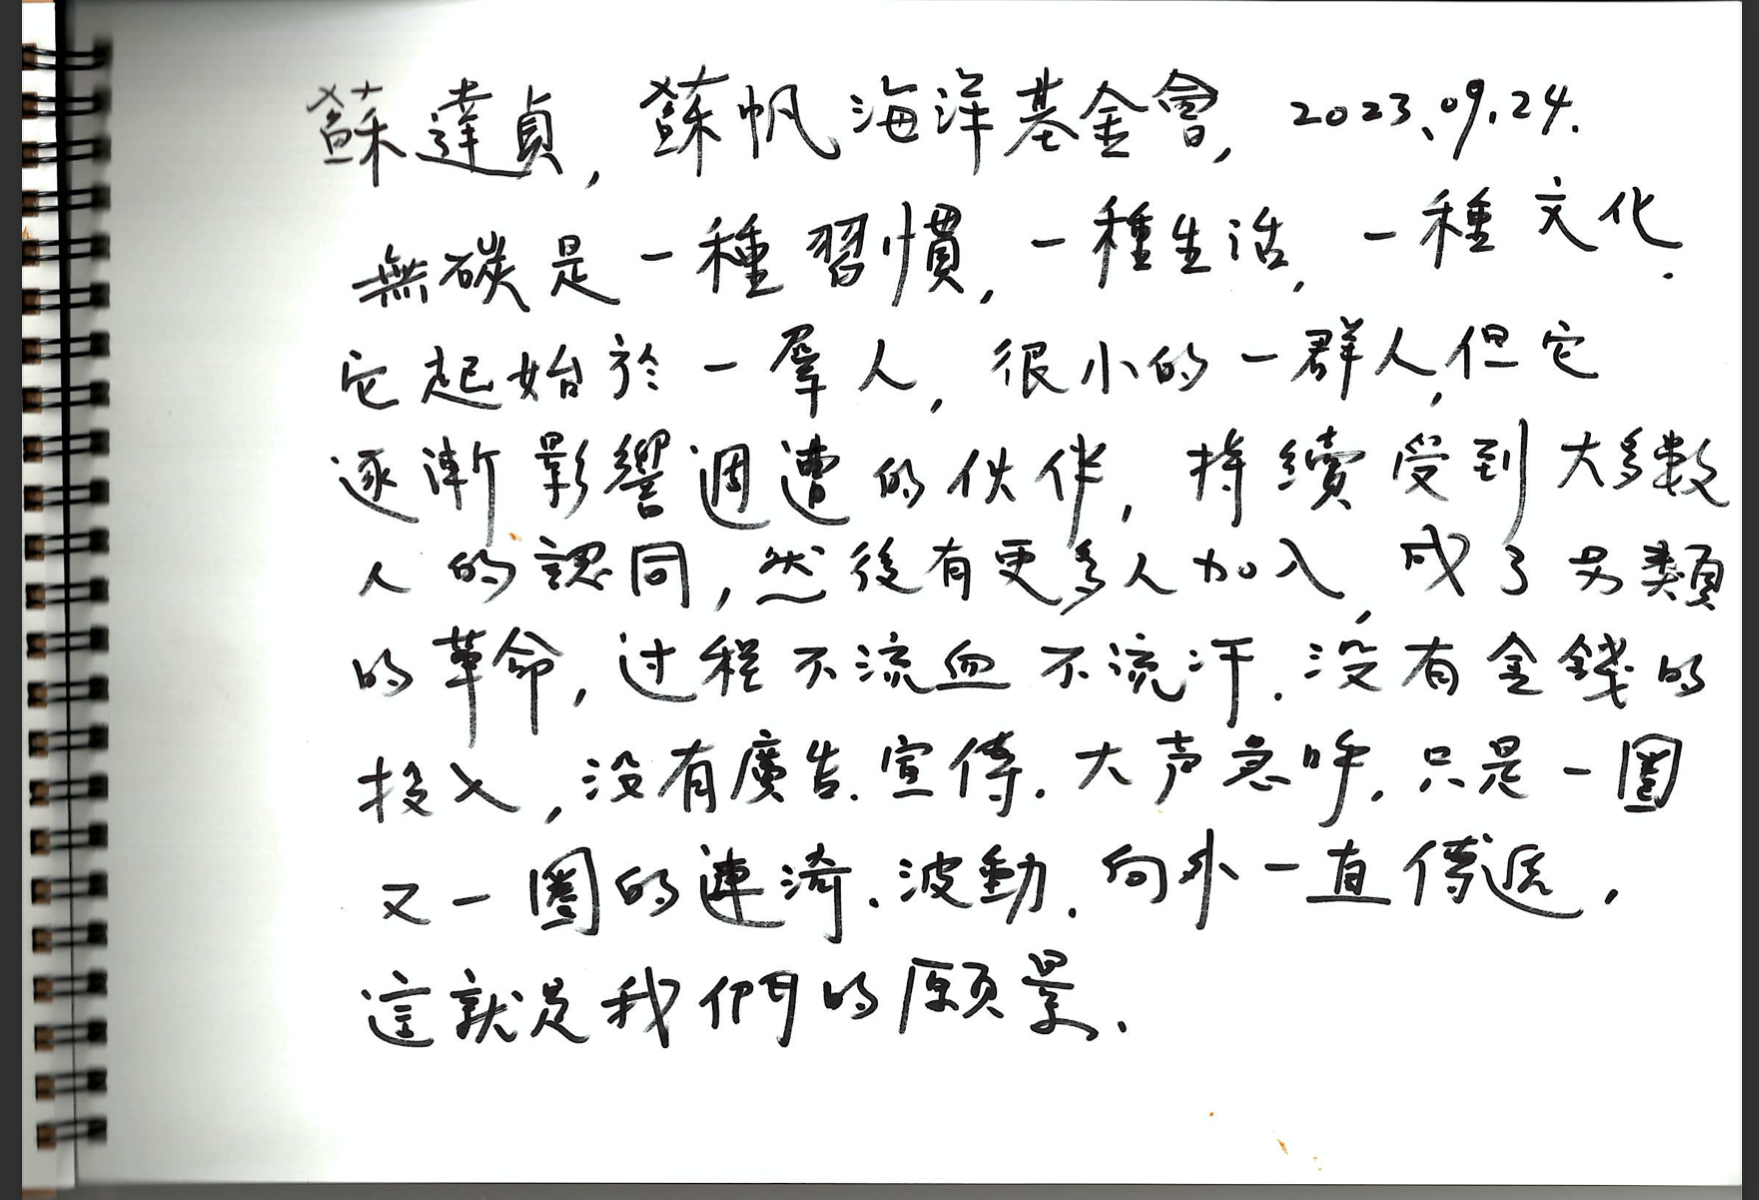 蘇達貞, 蘇帆海洋基金會, 2023、09.24.
無碳是一種習慣, 一種生活, 一種文化.
它起始於一羣人, 很小的一群人, 但它
逐漸影響週遭的伙伴, 持續受到大多數
人的認同, 然後有更多人加入, 成了另類
的革命, 过程不流血不流汗. 没有金錢的
投入, 没有廣告. 宣傳. 大声急呼. 只是一圈
又一圈的漣漪. 波動. 向外一直傳遞,
這就是我們的願景.